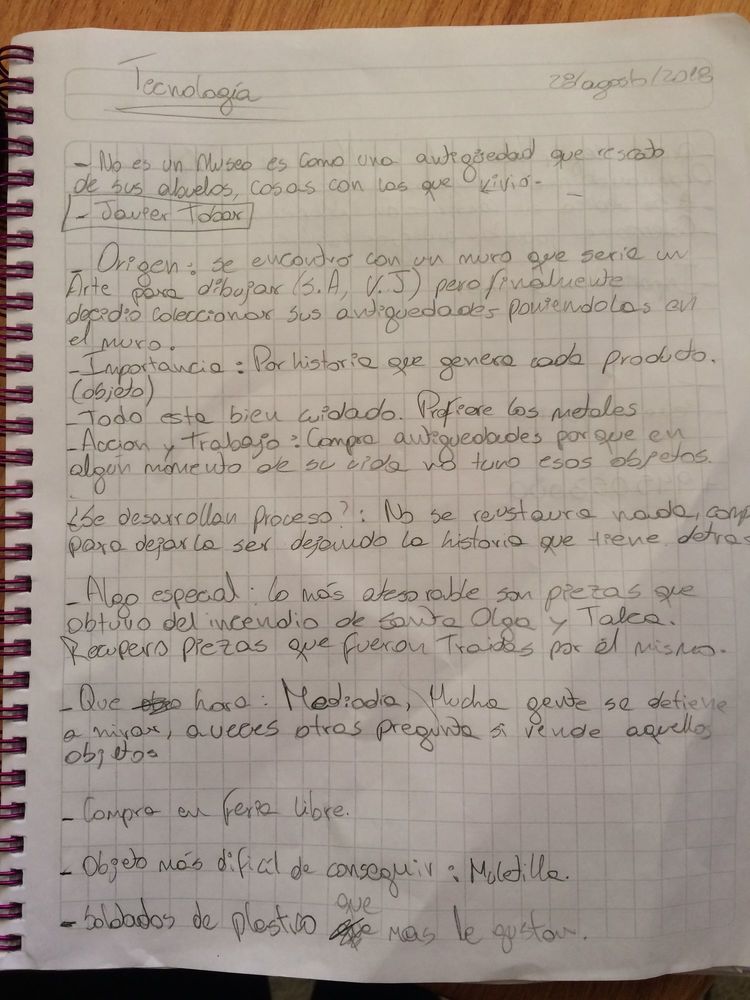 Tecnología
28/agosto/2018
- No es un Museo es como una antigüedad que rescato
de sus abuelos, cosas con las que vivió-
- Javier Tobar
- Origen: se encontro con un muro que seria un
Arte para dibujar (S.A, V.J) pero finalmente
decidio coleccionar sus antiguedades poniendolas en
el muro.
- Importancia: Por historia que genera cada producto.
(objeto)
- Todo esta bien cuidado. Prefiere los metales
- Accion y trabajo: Compra antiguedades porque en
algún momento de su vida no tuvo esos objetos.
¿Se desarrollan proceso?: No se reustaura nada, comp
para dejarla ser dejando la historia que tiene detras
- Algo especial: lo más atesorable son piezas que
obtuvo del incendio de Santa Olga y Talca.
Recupero piezas que fueron Traidas por él mismo.
- Que hora: Mediodia, Mucha gente se detiene
a mirar, aveces otras pregunta si vende aquellos
objetos
- Compra en feria libre.
- Objeto más dificil de conseguir: Moletilla.
- Soldados de plastico que mas le gustan.